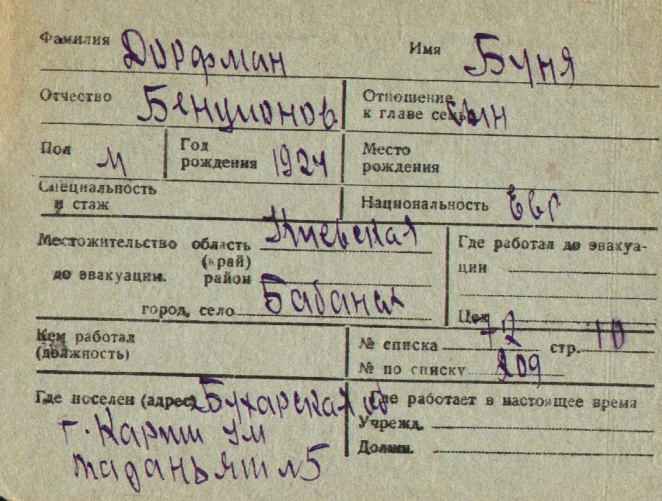 Фамилия Дорфман Имя Буня
Отчество Бенционов Отношение
к главе семьи сын
Пол М Год
рождения 1924 Место
рождения
Специальность
и стаж Национальность Евр
Местожительство область Киевская Где работал до эвакуа-
(край) ции
до эвакуации. район
город, село Бабанах
Цех
Кем работал
(должность) № списка 72 стр. 10
№ по списку 209
Где поселен (адрес) Бухарская об Где работает в настоящее время
г. Карши ул Учрежд.
№5 Должн.